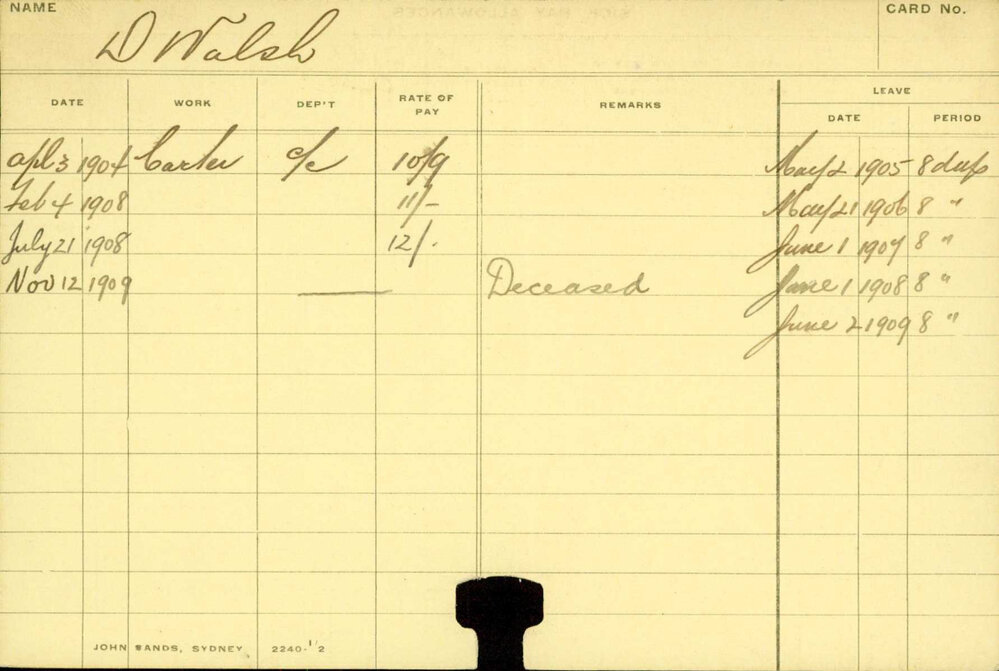 NAME
D Walsh
CARD No.
DATE WORK DEP'T RATE OF PAY REMARKS LEAVE
DATE PERIOD
Apl 3 1904 Carter c/c 10/9 May 2 1905 8 days
Feb 4 1908 11/- May 21 1906 8 "
July 21 1908 12/. June 1 1907 8 "
Nov 12 1909 — Deceased June 1 1908 8 "
June 2 1909 8 "
JOHN SANDS, SYDNEY 2240-1/2